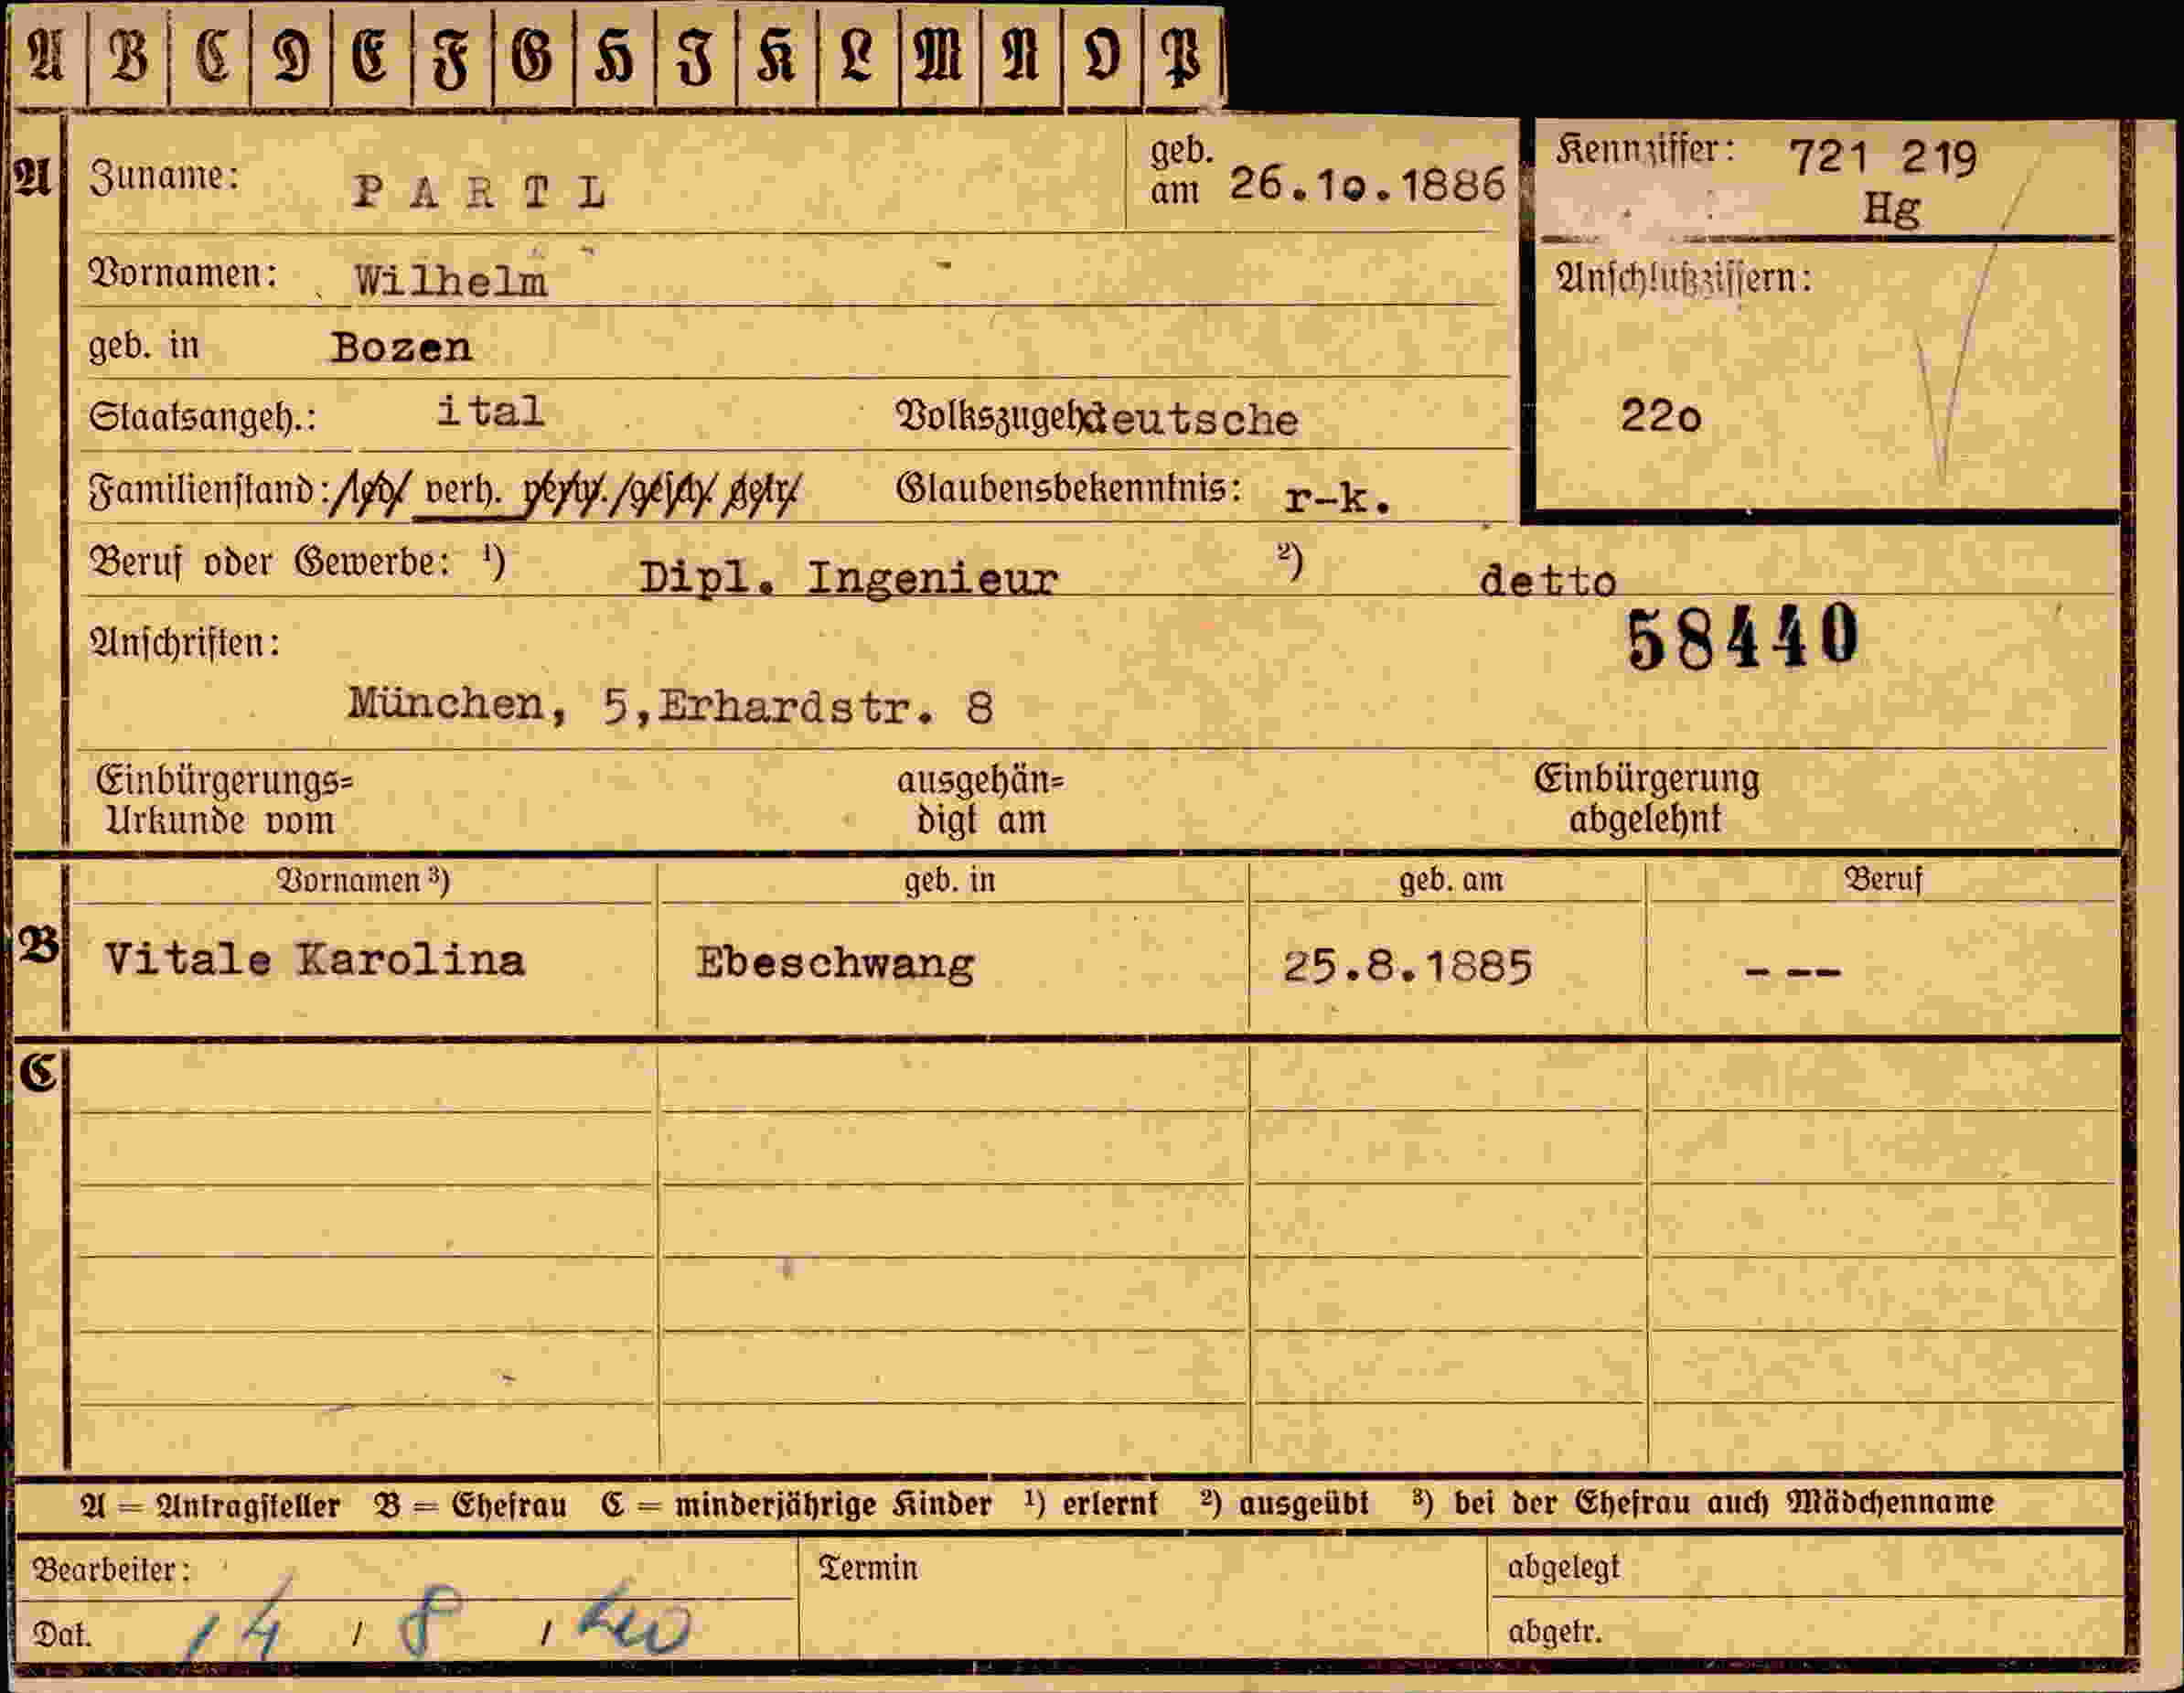 A B C D E F G H I K L M N O P
A Zuname: PARTL geb. am 26.10.1886
Kennziffer: 721 219
Hg
Vornamen: Wilhelm
Anschlußziffern:
geb. in Bozen
Staatsangeh.: ital Volkszugeh deutsche
22o
Familienstand: led. verh. verw. gesch. getr. Glaubensbekenntnis: r-k.
Beruf oder Gewerbe: ¹) Dipl. Ingenieur ²) detto
58440
Anschriften:
München, 5,Erhardstr. 8
Einbürgerungs= ausgehän= Einbürgerung
Urkunde vom digt am abgelehnt
Vornamen ³) geb. in geb. am Beruf
B Vitale Karolina Ebeschwang 25.8.1885 - --
C
A = Antragsteller B = Ehefrau C = minderjährige Kinder ¹) erlernt ²) ausgeübt ³) bei der Ehefrau auch Mädchenname
Bearbeiter: Termin abgelegt
Dat. 14 / 8 / 40 abgetr.